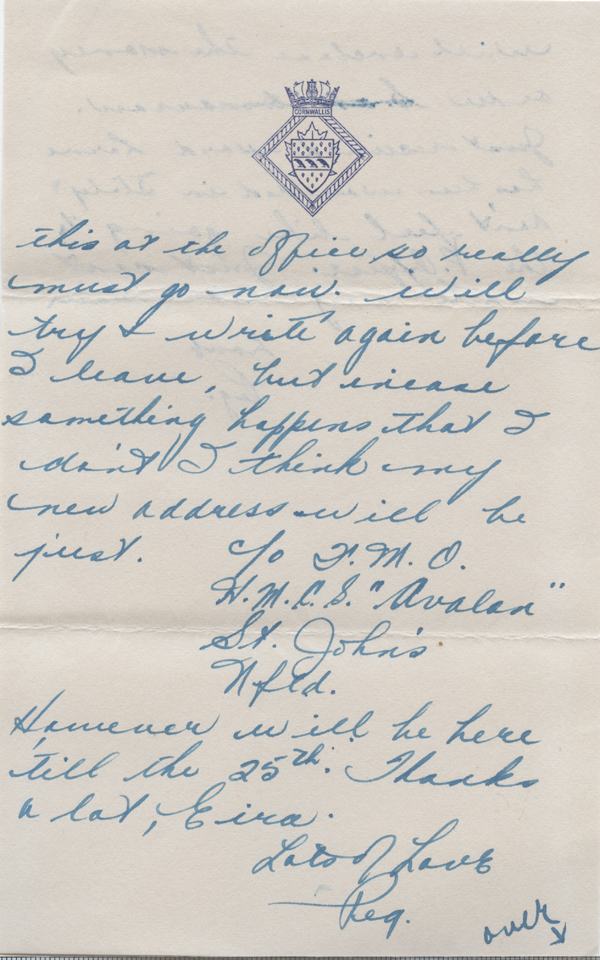 CORNWALLIS
this at the office so really
must go now. Will
try & write again before
I leave, but incase
something happens that I
don't I think my
new address will be
just. c/o F.M.O.
H.M.C.S. "Avalon"
St. John's
Nfld.
However will be here
till the 25th. Thanks
a lot, Eira.
Lots of Love
Reg.
over